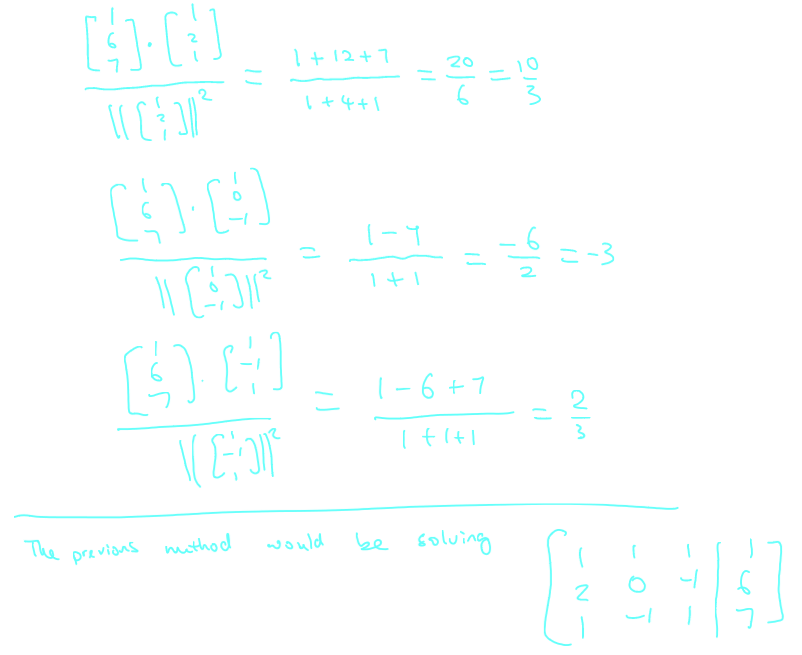 [1 6 7] · [1 2 1] / ||[1 2 1]||² = 1+12+7 / 1+4+1 = 20/6 = 10/3
[1 6 7] · [1 0 -1] / ||[1 0 -1]||² = 1-7 / 1+1 = -6/2 = -3
[1 6 7] · [1 -1 1] / ||[1 -1 1]||² = 1-6+7 / 1+1+1 = 2/3
The previous method would be solving
[1 1 1 | 1
2 0 -1 | 6
1 -1 1 | 7]